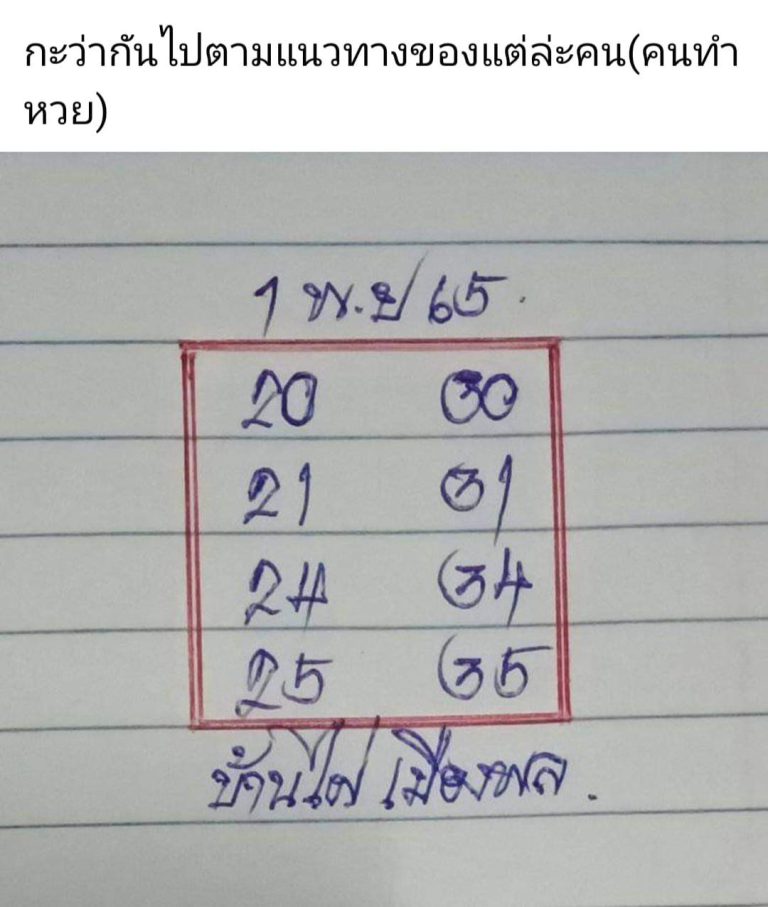 กะว่ากันไปตามแนวทางของแต่ล่ะคน(คนทำ
หวย)
1 พ.ย 65.
20 30
21 31
24 34
25 35
บ้านไผ่ เมืองพล.